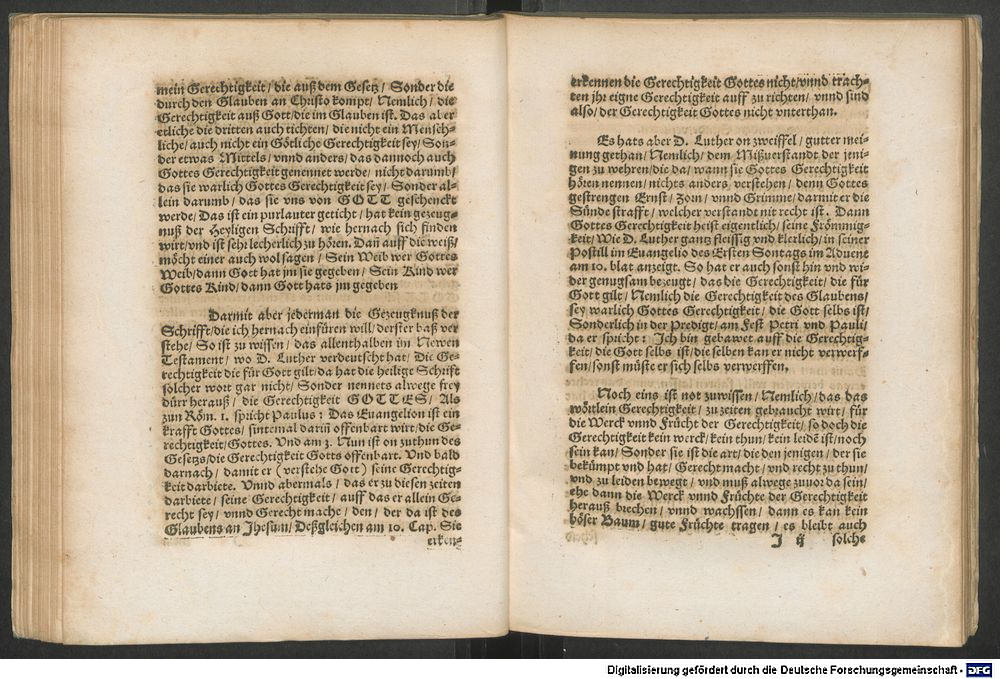 mein Gerechtigkeit/ die auß dem Gesetz/ Sonder die
durch den Glauben an Christo kompt/ Nemlich/ die
Gerechtigkeit auß Gott/ die im Glauben ist. Das aber
etliche die dritten auch tichten/ die nicht ein Mensch-
liche/ auch nicht ein Götliche Gerechtigkeit sey/ Son-
der etwas Mittels/ vnnd anders/ das dannoch auch
Gottes Gerechtigkeit genennet werde/ nicht darumb/
das sie warlich Gottes Gerechtigkeit sey/ Sonder al-
lein darumb/ das sie vns von GOTT geschenckt
werde/ Das ist ein purlauter geticht/ hat kein gezeug-
nuß der Heyligen Schrifft/ wie hernach sich finden
wirt/ vnd ist sehr lecherlich zu hören. Dañ auff die weiß/
möcht einer auch wol sagen/ Sein Weib wer Gottes
Weib/ dann Gott hat jm sie gegeben/ Sein Kind wer
Gottes Kind/ dann Gott hats jm gegeben
Darmit aber jederman die Gezeugknuß der
Schrifft/ die ich hernach einfüren will/ derster baß ver-
stehe/ So ist zu wissen/ das allenthalben im Newen
Testament/ wo D. Luther verdeutscht hat/ Die Ge-
rechtigkeit die für Gott gilt/ da hat die heiligt Schrift
solcher wort gar nicht/ Sonder nennets alwege frey
dürr herauß/ die Gerechtigkeit GOTTES/ Als
zun Röm. 1. spricht Paulus: Das Euangelion ist ein
krafft Gottes/ sintemal dariñ offenbart wirt/ die Ge-
rechtigkeit/ Gottes. Vnd am 3. Nun ist on zuthun des
Gesetzs/ die Gerechtigkeit Gotts offenbart. Vnd bald
darnach/ damit er (verstehe Gott) seine Gerechtig-
keit darbiete. Vnnd abermals/ das er zu disen zeiten
darbiete/ seine Gerechtigkeit/ auff das er allein Ge-
recht sey/ vnnd Gerecht mache/ den/ der da ist des
Glaubens an Jhesum/ Deßgleichen am 10. Cap. Sie
erken-
erkennen die Gerechtigkeit Gottes nicht/ vnnd trach-
ten jhr eigne Gerechtigkeit auff zu richten/ vnnd sind
also/ der Gerechtigkeit Gottes nicht vnterthan.
Es hats aber D. Luther on zweiffel/ gutter mei-
nung gethan/ Nemlich/ dem Mißuerstandt der jeni-
gen zu wehren/ die da/ wann sie Gottes Gerechtigkeit
hören nennen/ nichts anders verstehen/ denn Gottes
gestrengen Ernst/ Zorn/ vnnd Grimme/ darmit er die
Sünde strafft/ welcher verstandt nit recht ist. Dann
Gottes Gerechtigkeit heist eigentlich/ seine Frömmig-
keit/ Wie D. Luther gantz fleissig vnd klerlich/ in seiner
Postill im Euangelio des Ersten Sontags im Aduent
am 10. blat anzeigt. So hat er auch sonst hin vnd wi-
der genugsam bezeugt/ das die Gerechtigkeit/ die für
Gott gilt/ Nemlich die Gerechtigkeit des Glaubens/
sey warlich Gottes Gerechtigkeit/ die Gott selbs ist/
Sonderlich in der Predigt/ am Fest Petri vnd Pauli/
da er spricht: Ich bin gebawet auff die Gerechtig-
keit/ die Gott selbs ist/ die selben kan er nicht verwerf-
fen/ sonst müste er sich selbs verwerffen.
Noch eins ist not zuwissen/ Nemlich/ das das
wörtlein Gerechtigkeit/ zu zeiten gebraucht wirt/ für
die Werck vnnd Frücht der Gerechtigkeit/ so doch die
Gerechtigkeit kein werck/ kein thun/ kein leidẽ ist/ noch
sein kan/ Sonder sie ist die art/ die den jenigen/ der sie
bekümpt vnd hat/ Gerecht macht/ vnd recht zu thun/
vnd zu leiden bewegt/ vnd muß alwege zuuor da sein/
ehe dann die Werck vnnd Früchte der Gerechtigkeit
herauß brechen/ vnnd wachssen/ dann es kan kein
böser Baum/ gute Früchte tragen/ es bleibt auch
J ij solche
Digitalisierung gefördert durch die Deutsche Forschungsgemeinschaft - DFG